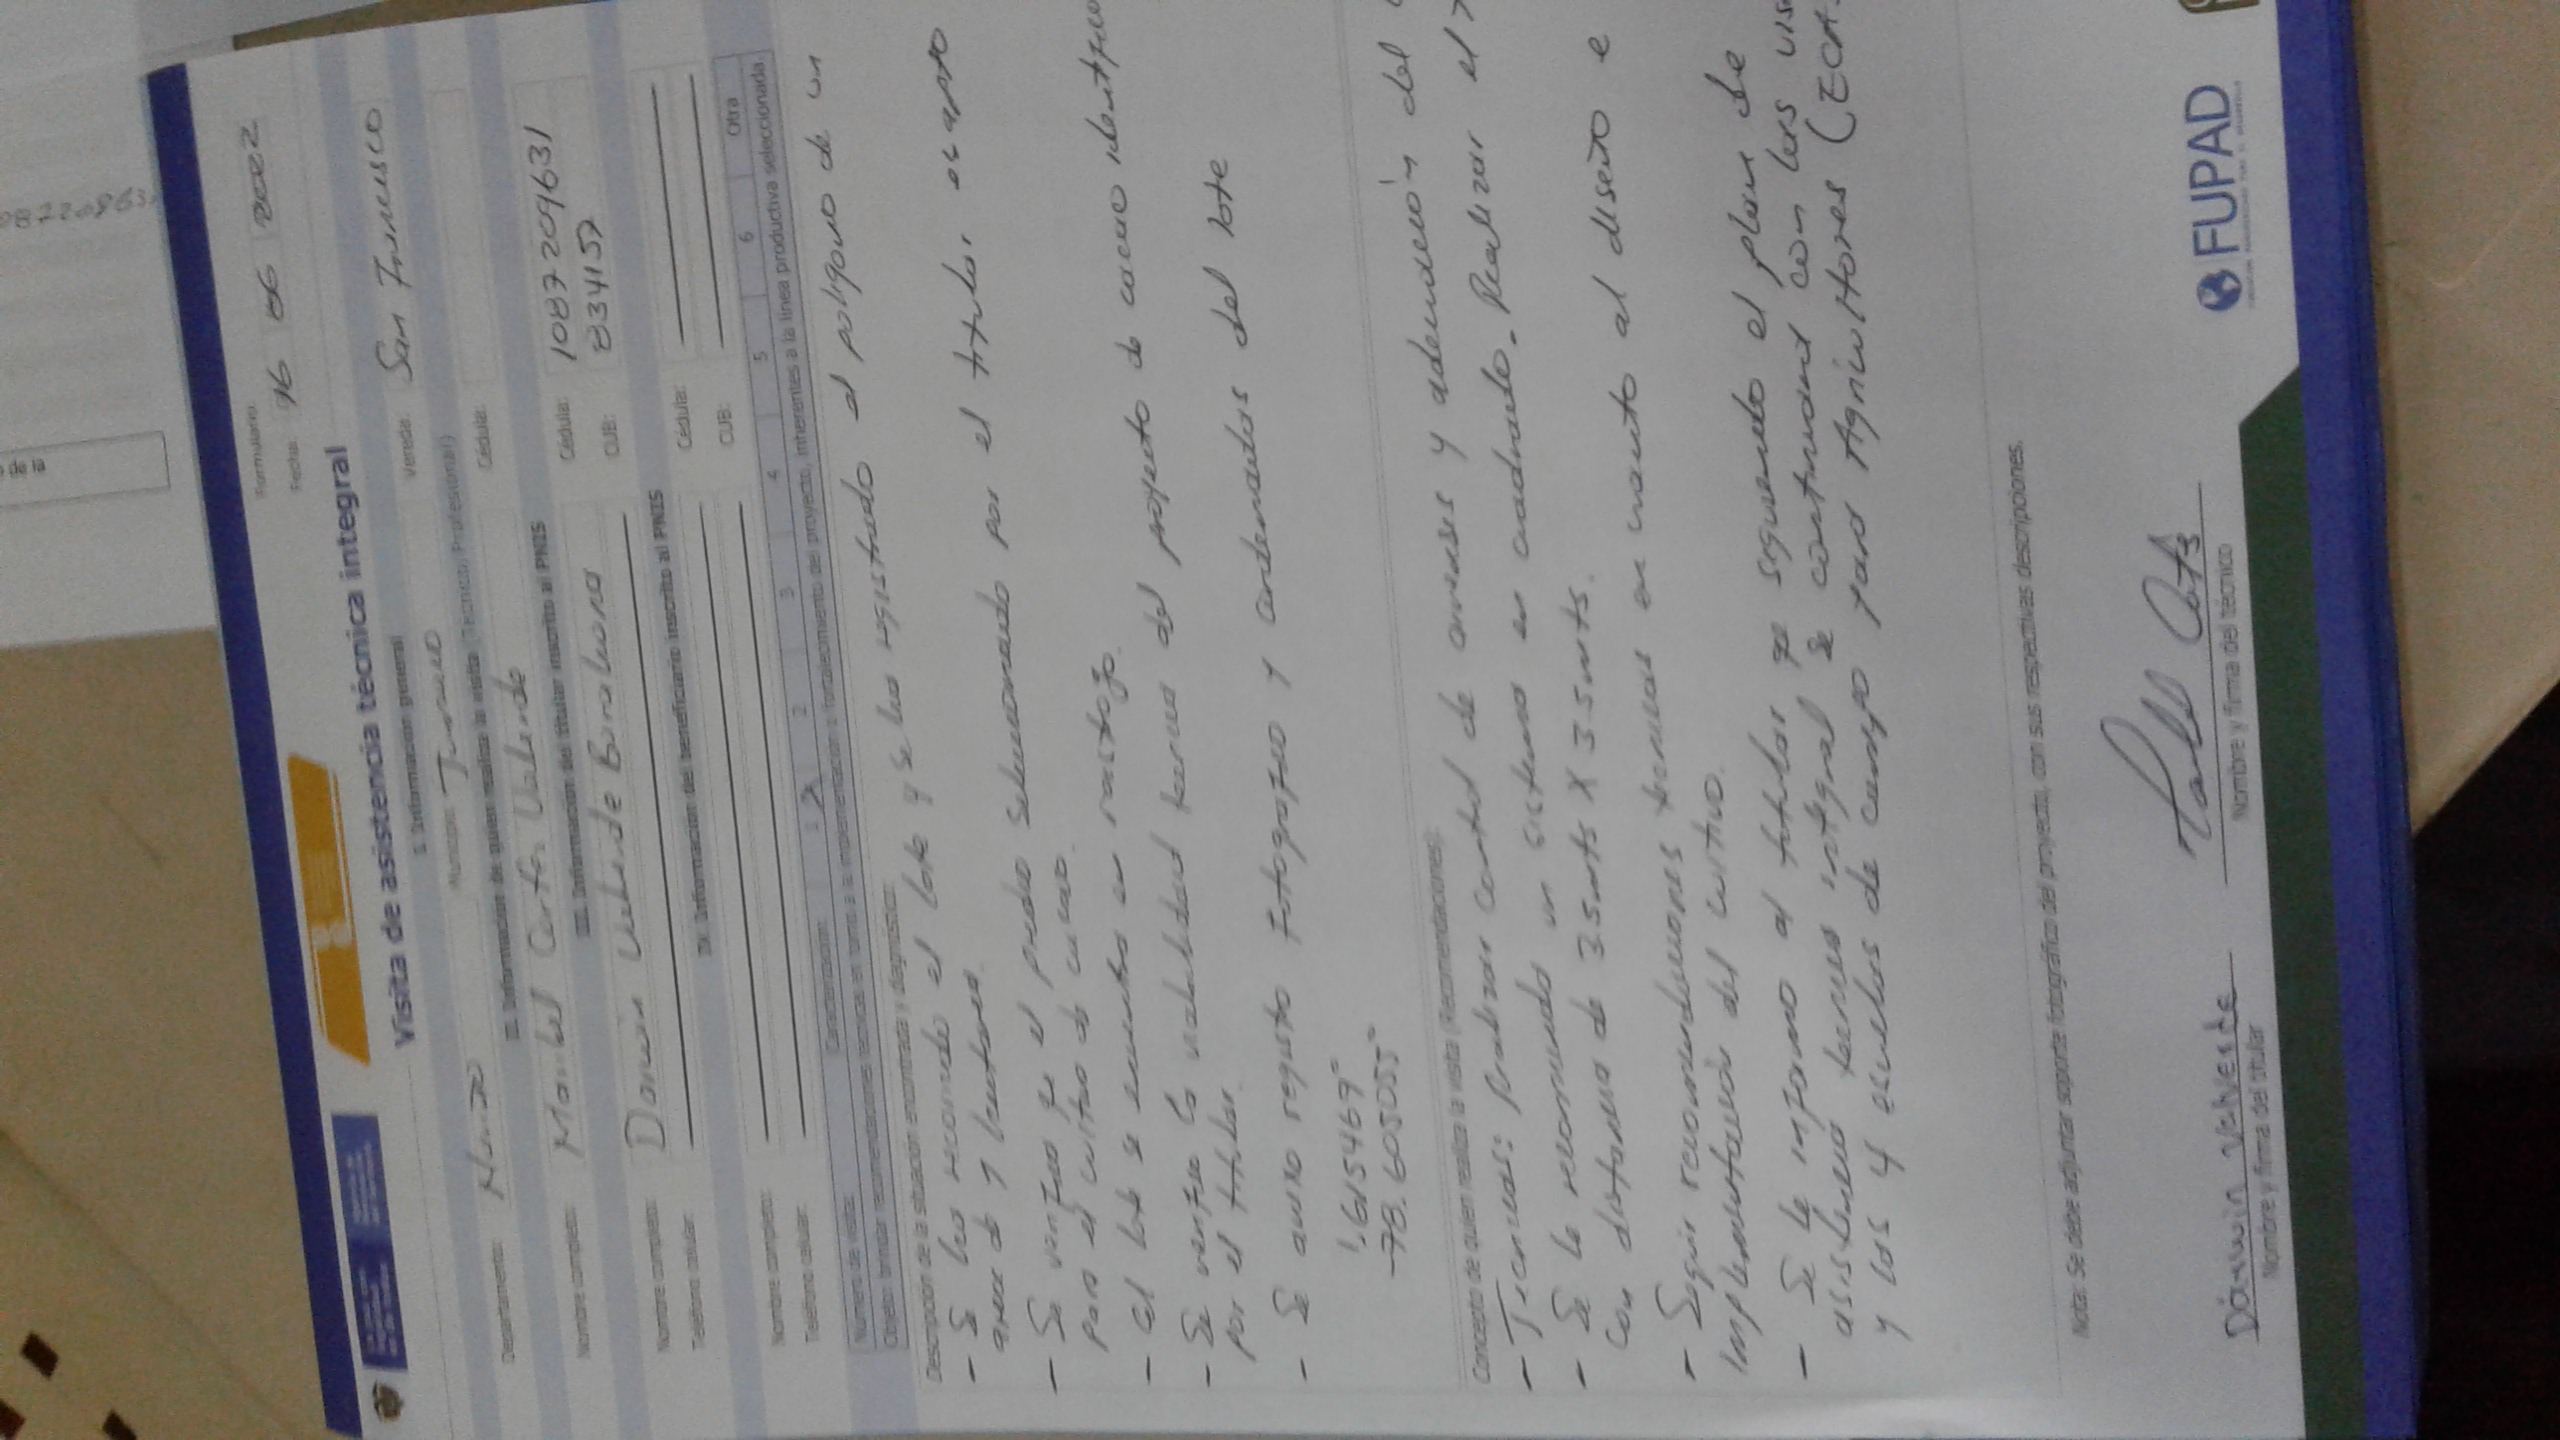 Formulario:
Fecha: 16 06 2022
Visita de asistencia técnica integral
I. Información general
Departamento: Municipio: Tumaco Vereda: San Francisco
II. Información de quien realiza la visita (Técnico/ Profesional)
Nombre completo: Maribel Cortés Valverde Cédula:
III. Información del titular inscrito al PNIS
Nombre completo: Darwin Valverde Cédula: 1087209631
Teléfono celular: CUB: 834157
IV. Información del beneficiario inscrito al PNIS
Nombre completo: Cédula:
Teléfono celular: CUB:
Número de visita: Caracterización: 1 X 2 3 4 5 6 Otra
Objeto: brindar recomendaciones técnicas en torno a la implementación o fortalecimiento del proyecto, inherentes a la línea productiva seleccionada
Descripción de la situación encontrada y diagnóstico:
- Se ha recorrido el lote y se ha registrado el poligono de un
area de 1 hectarea.
- Se verifico q el predio seleccionado por el titular es apto
para el cultivo de cacao.
- el lote se encuentra en rastrojo.
- Se verifico la viabilidad tecnica del proyecto de cacao identifico
por el titular.
- Se anexo registro Fotografico y cordenadas del lote
1,6155469°
-78.6055055°
Concepto de quien realiza la visita (Recomendaciones):
- Tecnicas: Realizar control de arvenses y adecuación del
- Se le recomiendo un sistema en cuadrado. Realizar el
con distancia de 3.5 mts X 3.5 mts.
- Seguir recomendaciones tecnicas en cuanto al diseño e
implementación del cultivo.
- Se le informo al titular qe siguiendo el plan de
asistencia tecnica integral se continuara con las
y las 4 escuelas de campo para Agricultores (ECA
Nota: Se debe adjuntar soporte fotográfico del proyecto, con sus respectivas descripciones.
Darwin Valverde
Nombre y firma del titular
Nombre y firma del técnico
FUPAD